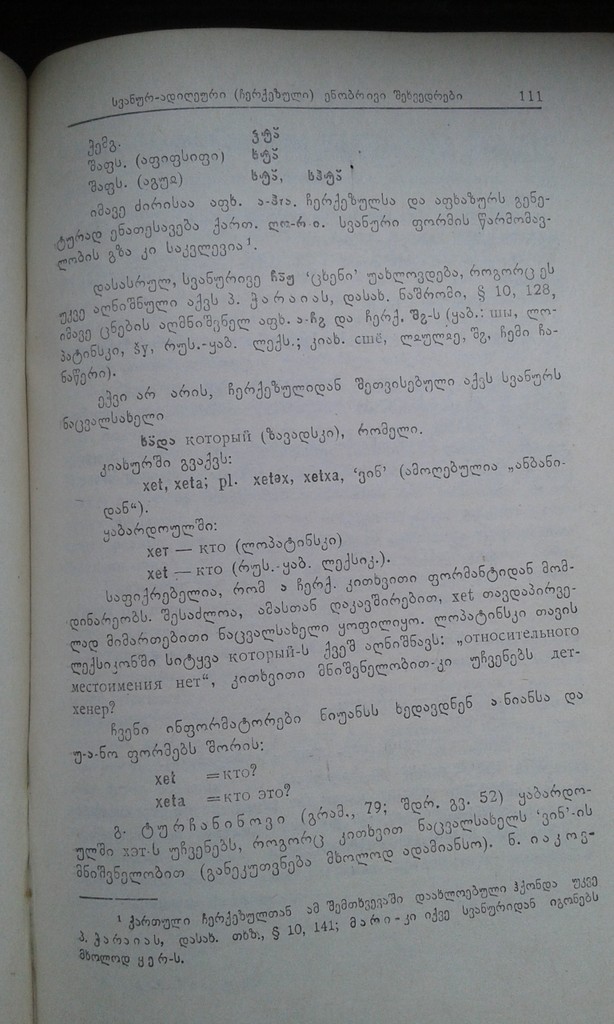 სვანურ-ადიღეური (ჩერქეზული) ენობრივი შეხვედრები 111
ჭემგ.
შაფს. (აფიფსიფი)
შაფს. (აგუჲ)
იმავე ძირისაა აფხ. ა-ჰჷა. ჩერქეზულსა და აფხაზურს გენე-
ტურად ენათესავება ქართ. ღო-რ-ი. სვანური ფორმის წარმომავ-
ლობის გზა კი საკვლევია¹.
დასასრულ, სვანურივე ჩა̈ჟ ‘ცხენი’ უახლოვდება, როგორც ეს
უკვე აღნიშნული აქვს პ. ჭარაიას, დასახ. ნაშრომი, § 10, 128,
იმავე ცნების აღმნიშვნელ აფხ. ა-ჩჷ და ჩერქ. შჷ-ს (ყაბ.: шы, ლო-
პატინსკი, šy, რუს.-ყაბ. ლექს.; კიახ. сшё, შჷ, ჩემი ჩა-
ნაწერი).
ეჭვი არ არის, ჩერქეზულიდან შეთვისებული აქვს სვანურს
ნაცვალსახელი
ხა̈და который (ზავადსკი), რომელი.
კიახურში გვაქვს:
xet, xeta; pl. xetəx, xetxa, ‘ვინ’ (ამოღებულია „ანბანი-
დან“).
ყაბარდოულში:
хет — кто (ლოპატინსკი)
xet — кто (რუს.-ყაბ. ლექსიკ.).
საფიქრებელია, რომ ა ჩერქ. კითხვითი ფორმანტიდან მომ-
დინარეობს. შესაძლოა, ამასთან დაკავშირებით, xet თავდაპირვე-
ლად მიმართებითი ნაცვალსახელი ყოფილიყო. ლოპატინსკი თავის
ლექსიკონში სიტყვა который-ს ქვეშ აღნიშნავს: „относительного
местоимения нет“, კითხვითი მნიშვნელობით-კი უჩვენებს дет-
хенер?
ჩვენი ინფორმატორები ნიუანსს ხედავდნენ ა-ნიანსა და
უ-ა-ნო ფორმებს შორის:
xet =кто?
xeta =кто это?
გ. ტურჩანინოვი (გრამ., 79; შდრ. გვ. 52) ყაბარდო-
ულში хэт-ს უჩვენებს, როგორც კითხვით ნაცვალსახელს ‘ვინ’-ის
მნიშვნელობით (განეკუთვნება მხოლოდ ადამიანსო). ნ. იაკოვ-
¹ ქართული ჩერქეზულთან ამ შემთხვევაში დაახლოებული ჰქონდა უკვე
პ. ჭარაიას, დასახ. თხზ., § 10, 141; მარი-კი იქვე სვანურიდან იგონებს
მხოლოდ ყერ-ს.